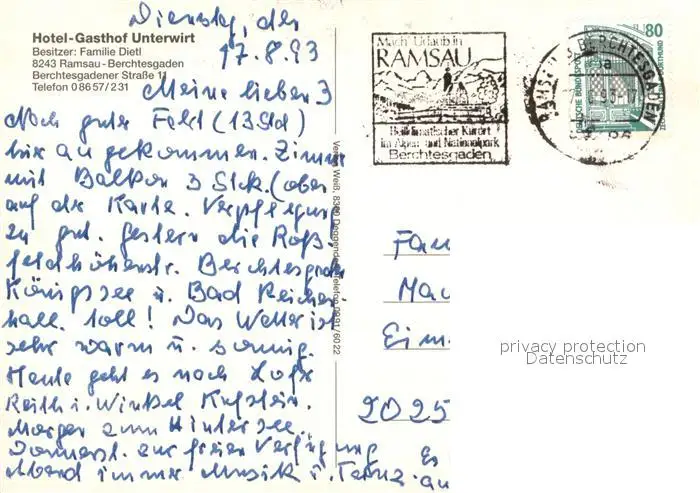 Dienstag, den
17.8.93
Hotel-Gasthof Unterwirt
Besitzer: Familie Dietl
8243 Ramsau-Berchtesgaden
Berchtesgadener Straße 11
Telefon 08657/231
Meine lieben 3
Nach guter Fahrt (13 Std)
hier angekommen. Zimmer
mit Balkon 3 Stck. (oben
auf der Karte. Verpflegung
zu gut. Gestern die Roß
feldhöhenstr. Berchtesgaden
Königssee u. Bad Reichen
hall. toll! Das Wetter ist
sehr warm u. sonnig.
Heute geht es nach
Reith i. Winkel Kufstein.
Morgen zum Hintersee.
Donnerst. zur freien Verfügung
Abend immer Musik u. Tanz.
Es
au
Mach' Urlaub in
RAMSAU
Heilklimatischer Kurort
im Alpen- und Nationalpark
Berchtesgaden
BERCHTESGADEN
80
DEUTSCHE BUNDESPOST
Fam
Mac
Eim
2025
privacy protection
Datenschutz